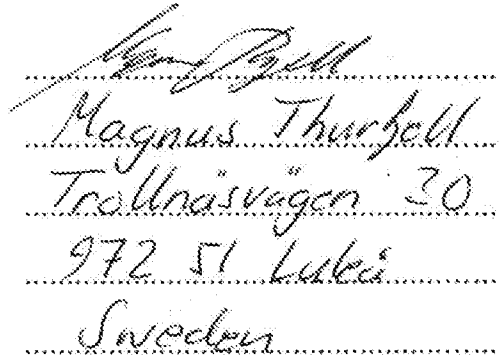 Magnus Thurfjell
Trollnäsvägen 30
972 51 Luleå
Sweden